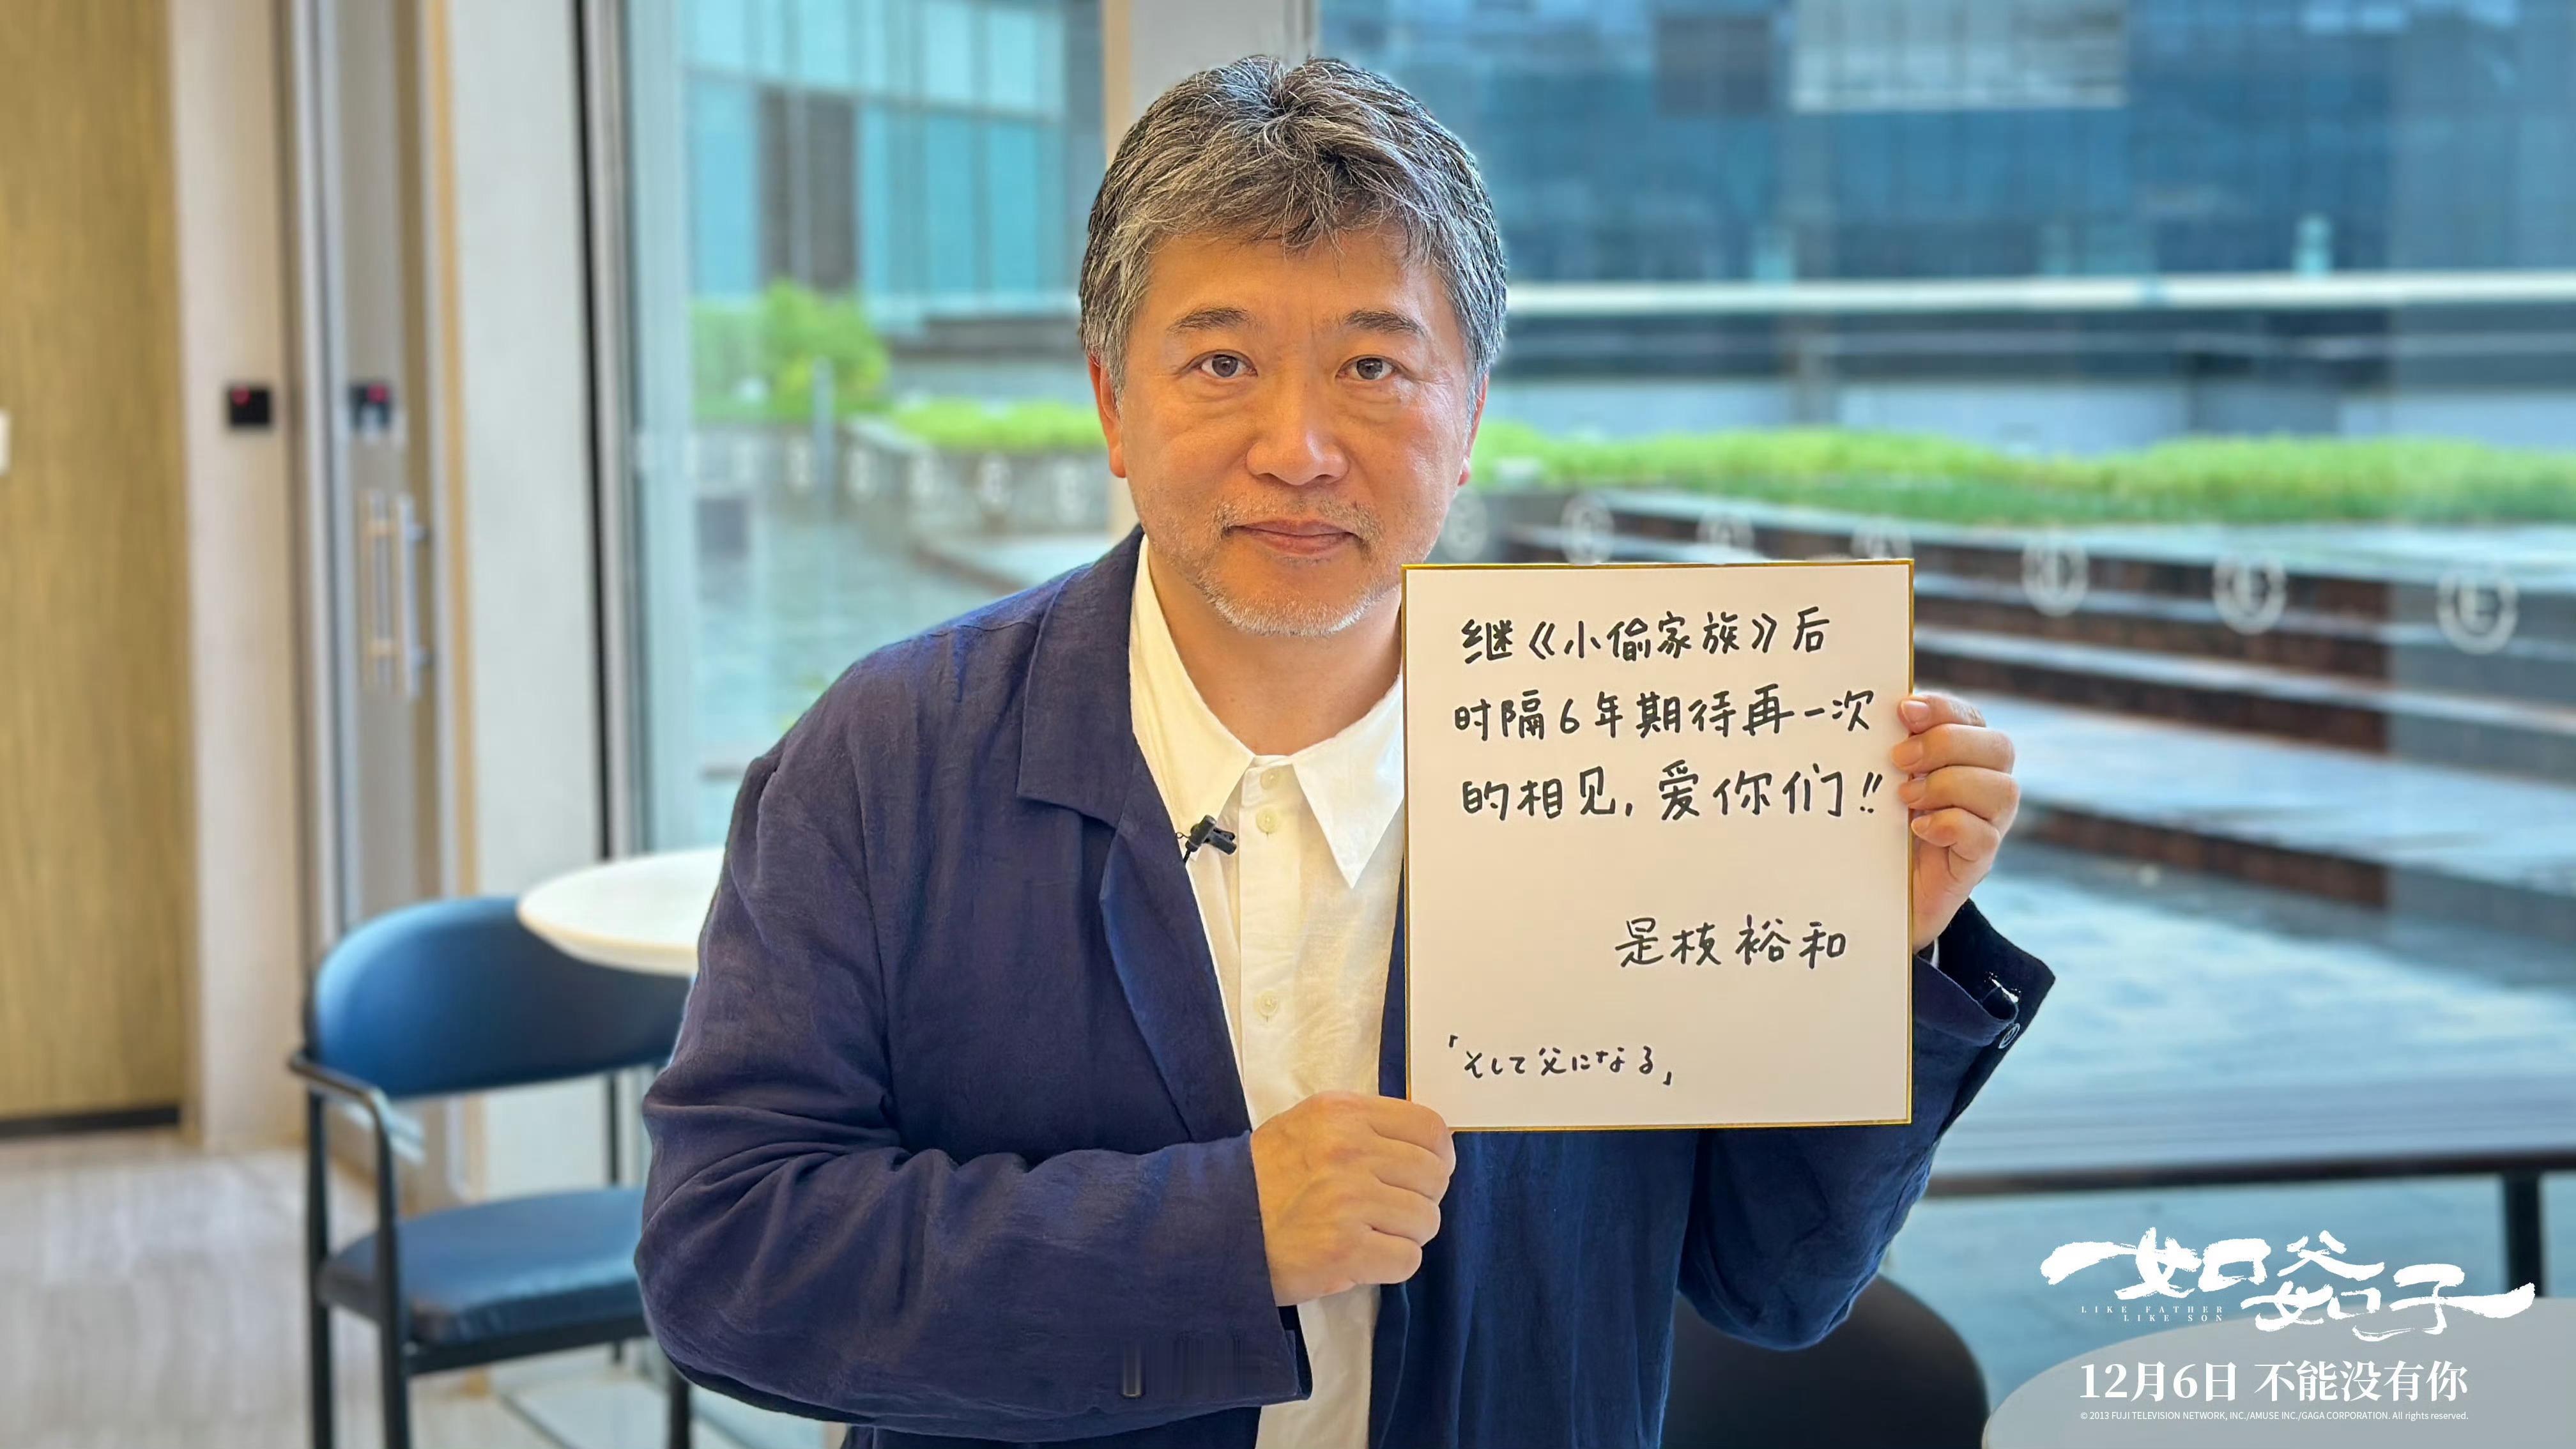 继《小偷家族》后
时隔6年期待再一次
的相见,爱你们!!
是枝裕和
「そして父になる」
如父如子
LIKE FATHER
LIKE SON
12月6日 不能没有你
© 2013 FUJI TELEVISION NETWORK, INC./AMUSE INC./GAGA CORPORATION. All rights reserved.